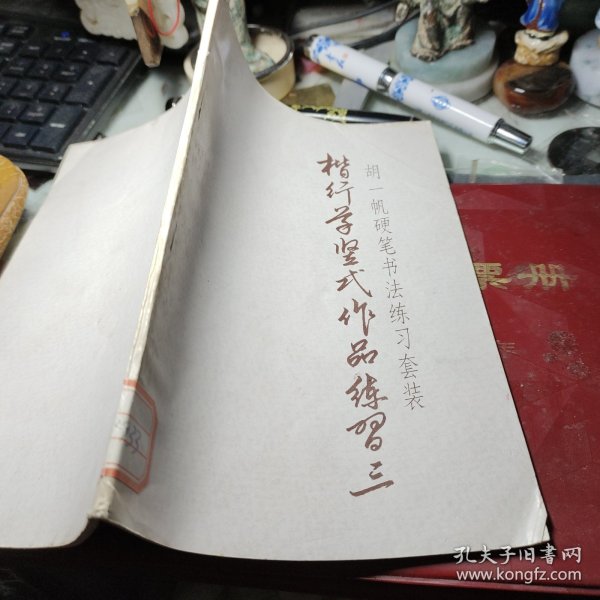 胡一帆硬笔书法练习套装
楷行草竖式作品练习三
票册
孔夫子旧书网
www.kongfz.com